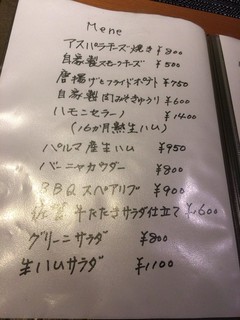 Mene
アスパラチーズ焼き ¥800
自家製スモークチーズ ¥500
唐揚げとフライドポテト ¥750
自家製肉みそきゅうり ¥600
ハモンセラーノ ¥1400
(16か月熟生ハム)
パルマ産生ハム ¥950
バーニャカウダー ¥800
BBQスペアリブ ¥900
佐賀牛たたきサラダ仕立て ¥1600
グリーンサラダ ¥800
生ハムサラダ ¥1100